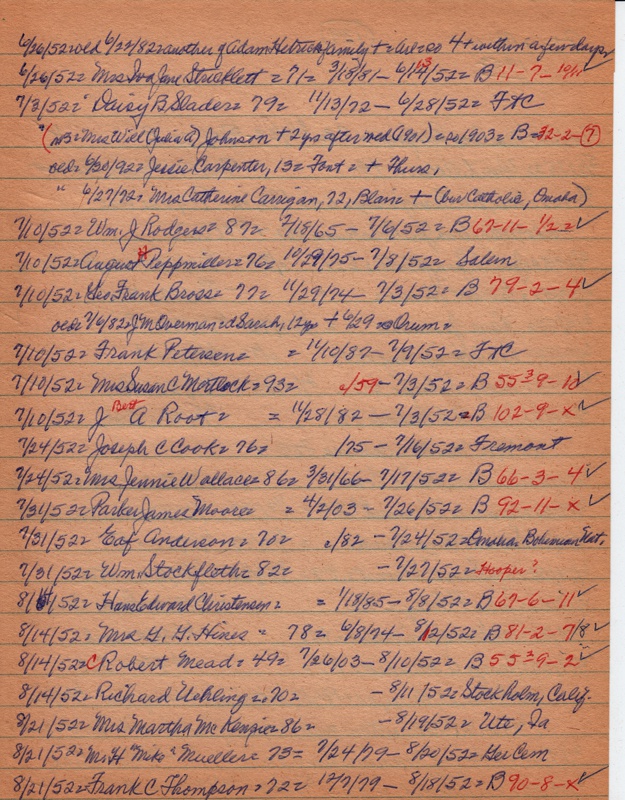 6/26/52 oed 6/22/82 another of Adam Hetrick family + = are so 4 + within a few days,
6/26/52 = Mrs Iva Jane Stricklett = 71 = 3/18/81 - 6/13/52 = B 11-7-10/11
7/3/52 = Daisy B Slader = 79 = 11/13/72 - 6/28/52 = FTC
(m3 = Mrs Will (Julia A) Johnson + 2 yrs after wed (1901) = so 1903 = B = 72-2-(7)
oed = 6/30/92 = Jessie Carpenter, 13 = Font = + Thurs,
" 6/27/72 = Mrs Catherine Carrigan, 72, Blair + (bur Catholic, Omaha)
7/10/52 = Wm. J Rodgers = 87 = 2/18/65 - 7/6/52 = B 67-11-1/2 = ✓
7/10/52 = August H Peppmiller = 76 = 10/29/75 - 7/8/52 = Salem
7/10/52 = Geo Frank Bross = 77 = 11/29/74 - 7/3/52 = B 79-2-4 ✓
oed = 7/6/82 = J M Overman = d Sarah, 12 yo + 6/29 = Orum =
7/10/52 = Frank Petersen = = 11/10/87 - 7/9/52 = FTC
7/10/52 = Mrs Susan C Mortlock = 93 = c/59 - 7/3/52 = B 55 3 9-10 ✓
7/10/52 = J Bert A Root = = 11/28/82 - 7/3/52 = B 102-9-x ✓
7/24/52 = Joseph C Cook = 76 = /75 - 7/16/52 = Fremont
7/24/52 = Mrs Jennie Wallace = 86 = 3/31/66 - 7/17/52 = B 66-3-4 ✓
7/31/52 = Parker James Moore = = 4/2/03 - 7/26/52 = B 92-11-x ✓
7/31/52 = Eaf Anderson = 70 = c/82 - 7/24/52 = Omaha Bohemian Nat.
7/31/52 = Wm. Stockfloth = 82 = - 7/27/52 = Hooper?
8/14/52 = Hans Edward Christensen = = 1/18/85 - 8/8/52 = B 67-6-11 ✓
8/14/52 = Mrs G. G. Hines = 78 = 6/8/74 - 8/12/52 = B 81-2-7/8 ✓
8/14/52 = C Robert Mead = 49 = 7/26/03 - 8/10/52 = B 55 3 9-2 ✓
8/14/52 = Richard Uehling = 70 = - 8/11/52 = Stockholm, Calif.
8/21/52 = Mrs Martha McKenzie = 86 = - 8/19/52 = Ute, Ia
8/21/52 = Mr H "Mike" Mueller = 73 = 7/24/79 - 8/20/52 = Ger Cem
8/21/52 = Frank C Thompson = 72 = 12/7/79 - 8/18/52 = B 90-8-x ✓